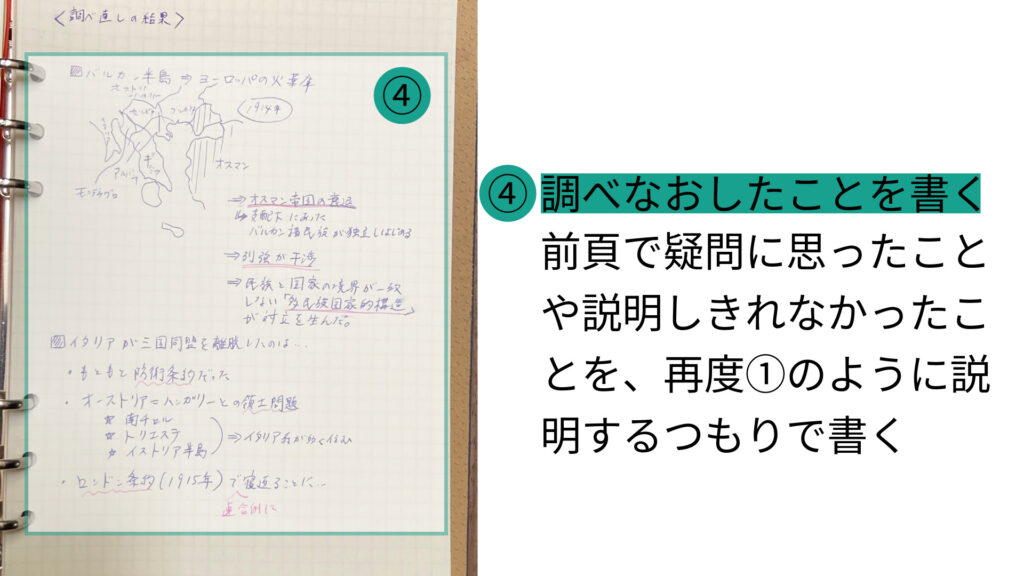 <調べ直しの結果>
バルカン半島⇒ヨーロッパの火薬庫
④
1914年
オーストリア
ハンガリー
セルビア
アルバニア
ギリシア
オスマン
モンテネグロ
⇒オスマン帝国の衰退
↳支配下にあった
バルカン諸民族が独立しはじめる
⇒列強が干渉
⇒民族と国家の境界が一致
しない「多民族国家的構造」
が対立を生んだ。
イタリアが三国同盟を離脱したのは…
・もともと防衛条約だった
・オーストリア=ハンガリーとの領土問題
☆南チロル
☆トリエステ
☆イストリア半島
⇒イタリア系が多く住む
・ロンドン条約(1915年)で寝返ることに…
連合側に
④ 調べなおしたことを書く
前頁で疑問に思ったこと
や説明しきれなかったこ
とを、再度①のように説
明するつもりで書く